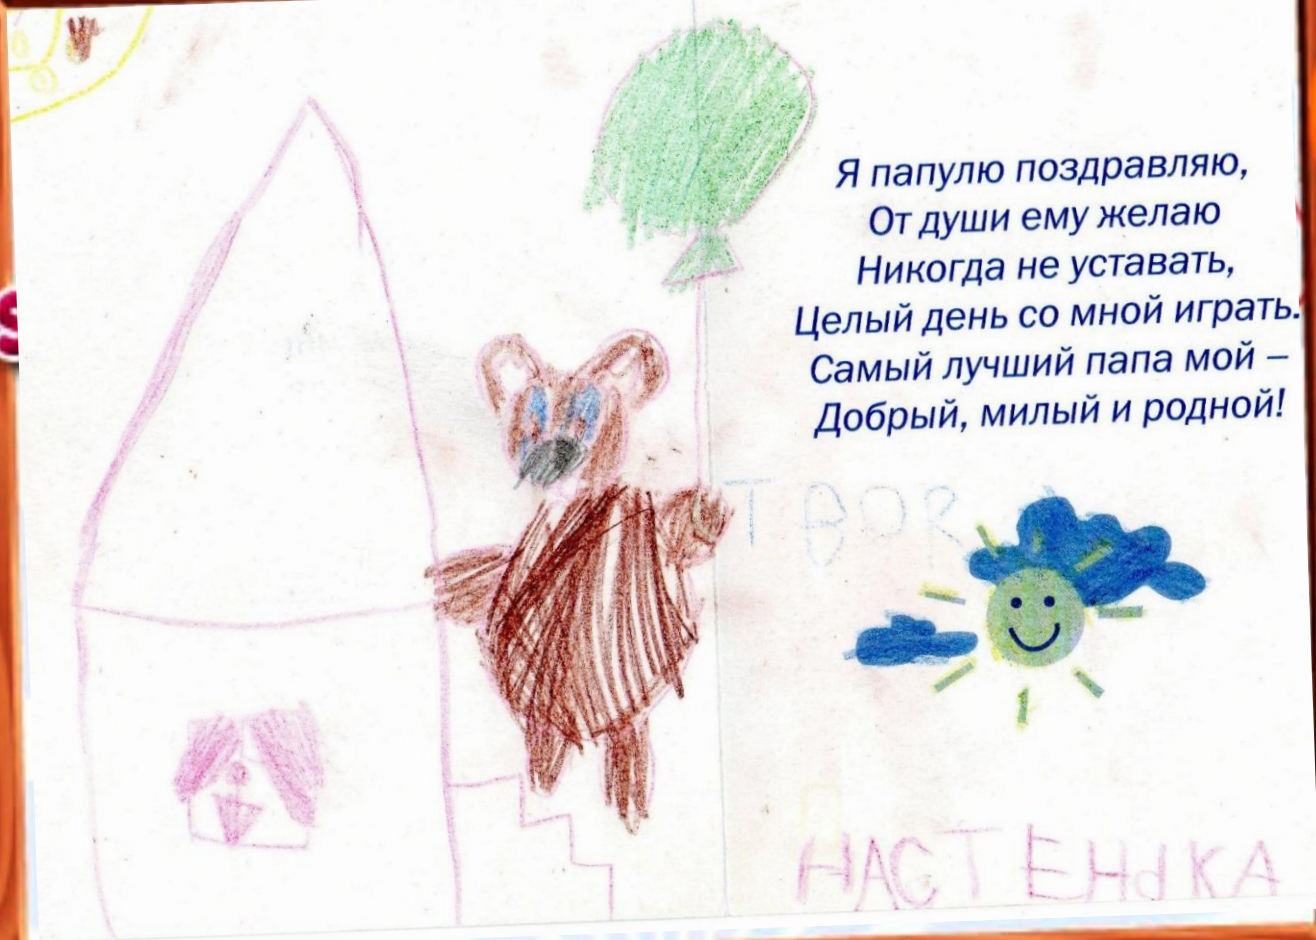 Я папулю поздравляю,
От души ему желаю
Никогда не уставать,
Целый день со мной играть.
Самый лучший папа мой –
Добрый, милый и родной!
НАСТЕНЬКА